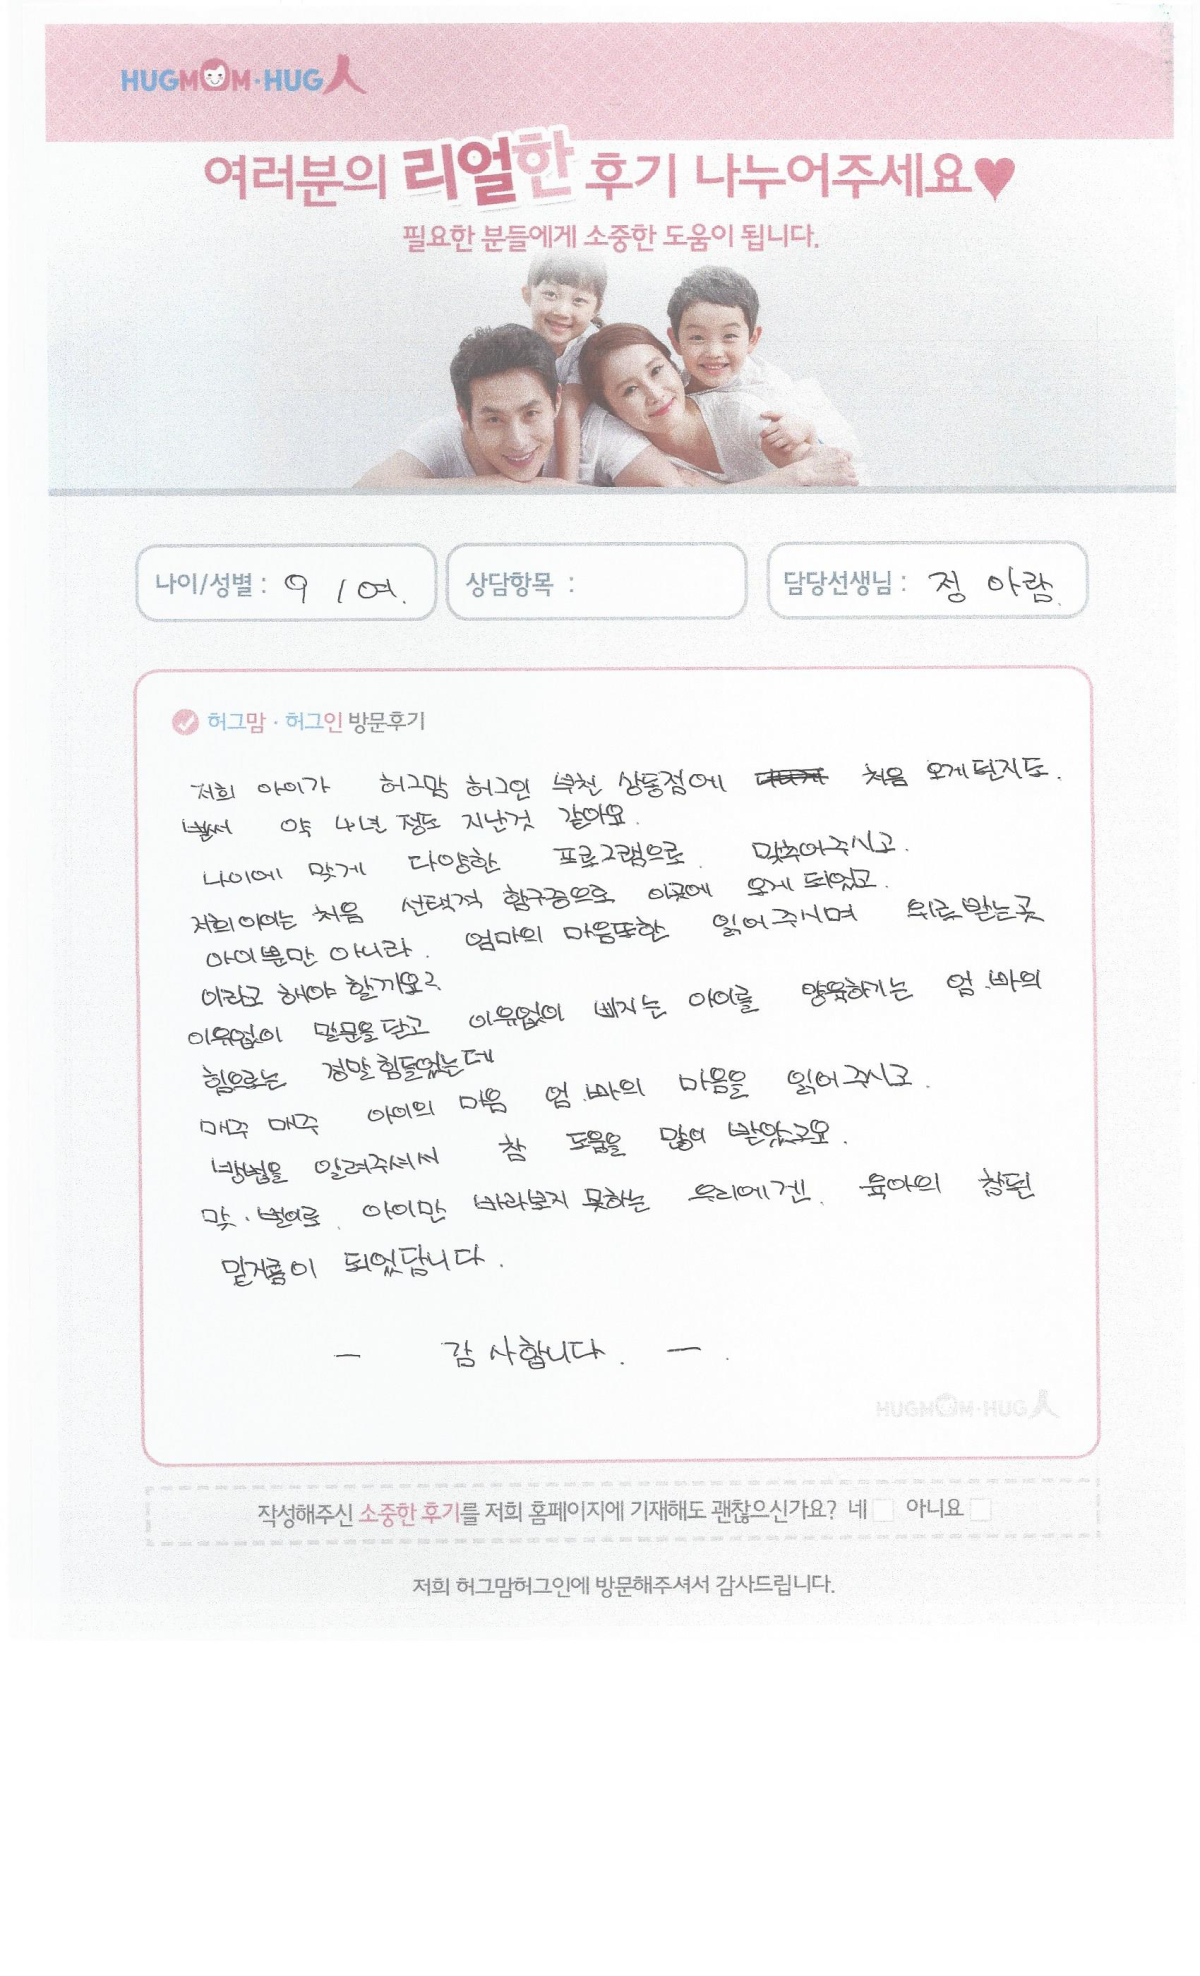 HUGMOM·HUG人
여러분의 리얼한 후기 나누어주세요♥
필요한 분들에게 소중한 도움이 됩니다.
나이/성별 : 9 / 여.
상담항목 :
담당선생님 : 정 아람.
허그맘·허그인 방문후기
저희 아이가 허그맘 허그인 부천 상동점에 처음 오게 된지도.
벌써 약 4년 정도 지난것 같아요.
나이에 맞게 다양한 프로그램으로. 맞추어주시고.
저희아이는 처음 선택적 함구증으로 이곳에 오게 되었고.
아이뿐만 아니라. 엄마의 마음또한 읽어주시며 위로받는곳
이라고 해야 할까요?
이유없이 말문을 닫고 이유없이 삐지는 아이를 양육하기는 엄.빠의
힘으로는 정말 힘들었는데
매주 매주 아이의 마음 엄.빠의 마음을 읽어주시고.
방법을 알려주셔서 참 도움을 많이 받았구요.
맞.벌이로. 아이만 바라보지 못하는 우리에겐. 육아의 참된
밑거름이 되었답니다.
- 감사합니다. - .
HUGMOM·HUG人
작성해주신 소중한 후기를 저희 홈페이지에 기재해도 괜찮으신가요? 네 아니요
저희 허그맘허그인에 방문해주셔서 감사드립니다.